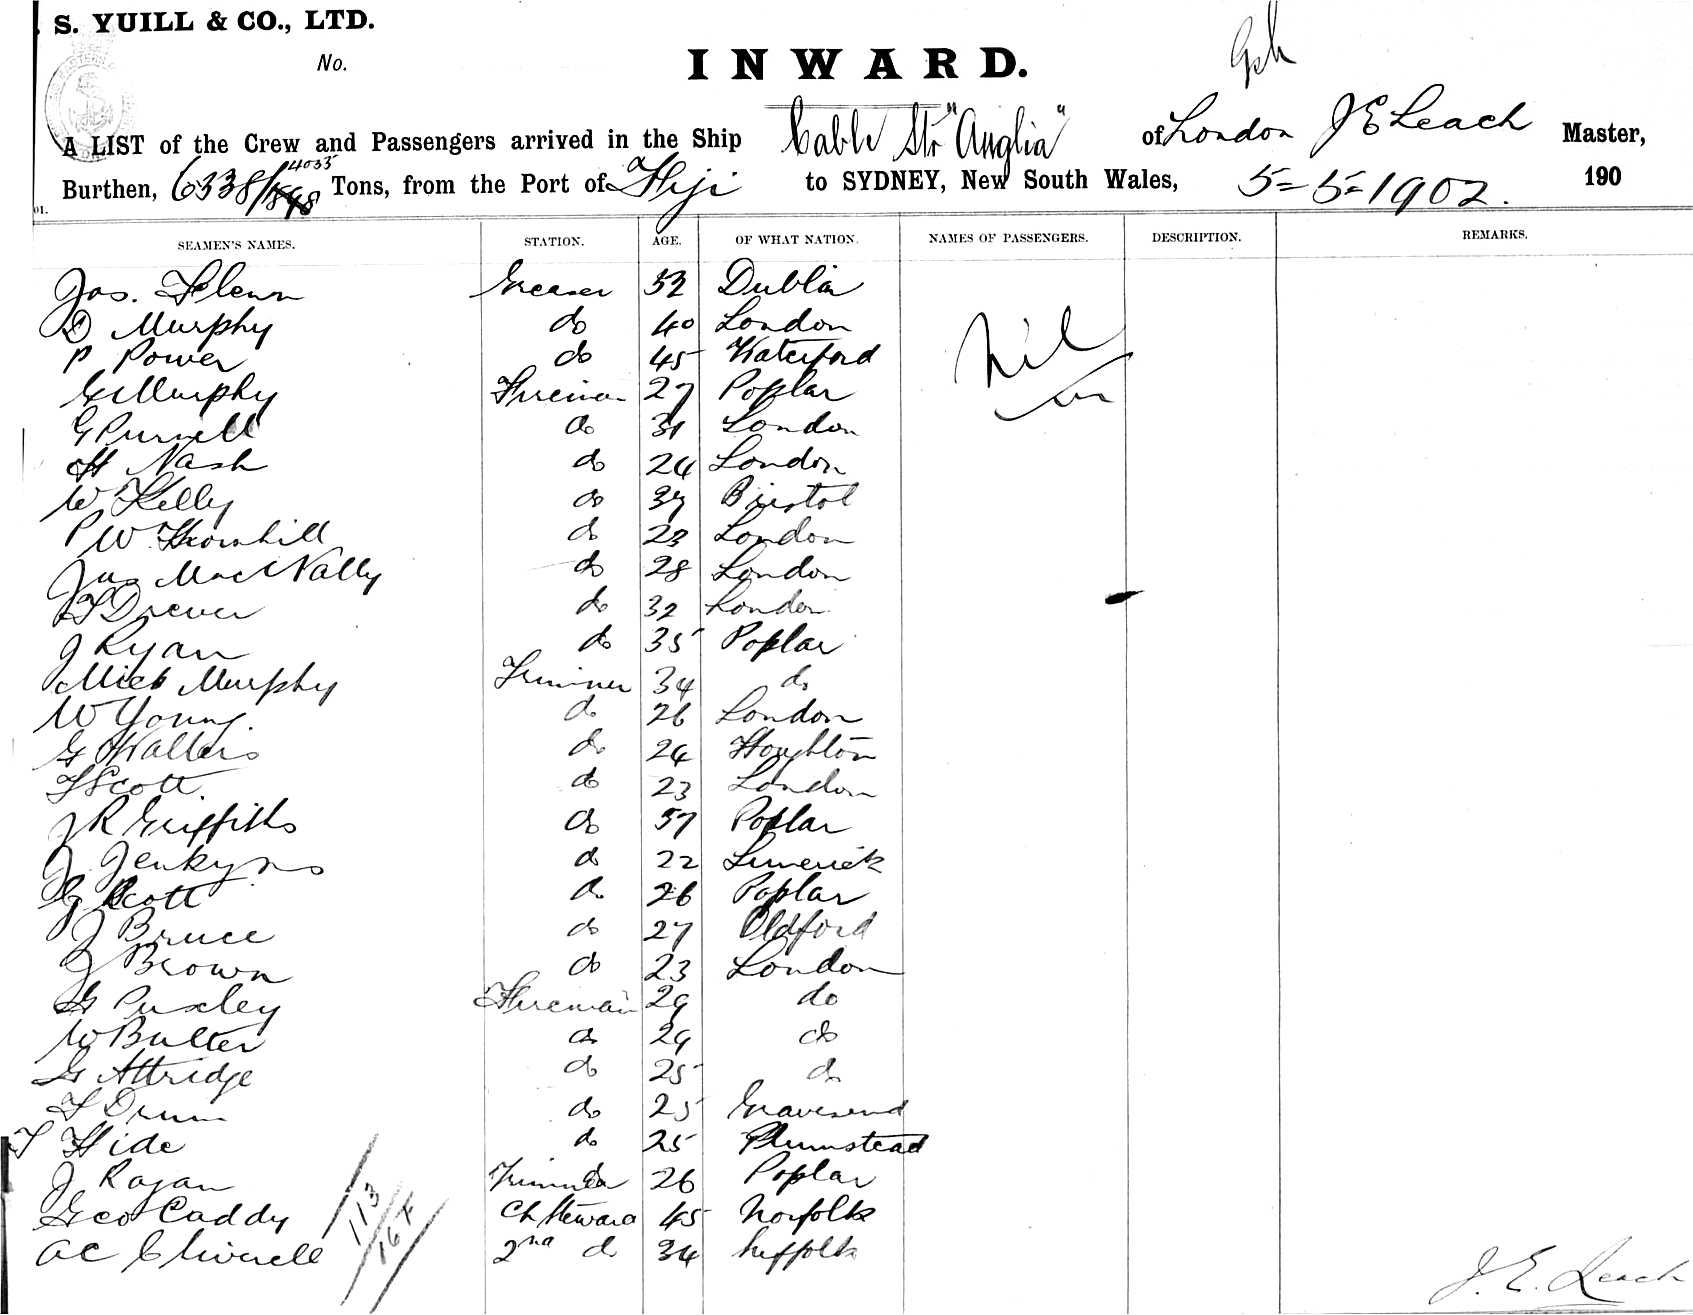 S. YUILL & CO., LTD.
No.
INWARD.
A LIST of the Crew and Passengers arrived in the Ship Cable Str "Anglia" of London J E Leach Master,
Burthen, 6338/4035 Tons, from the Port of Fiji to SYDNEY, New South Wales, 5=5=1902. 190
SEAMEN'S NAMES. STATION. AGE. OF WHAT NATION. NAMES OF PASSENGERS. DESCRIPTION. REMARKS.
Jas. Greaser 52 Dublin
D Murphy do 40 London Nil
P Power do 45 Waterford
G Murphy Fireman 27 Poplar
G Purnell do 31 London
H Nash do 24 London
W Kelly do 37 Bristol
P W Thornhill do 23 London
Jas MacNally do 28 London
F Drever do 32 London
J Ryan do 35 Poplar
Mick Murphy Trimmer 34 do
W Young. do 26 London
G Wallis do 24 Houghton
F Scott do 23 London
J R Griffiths do 57 Poplar
J. Jenkyns do 22 Limerick
G Scott do 26 Poplar
J Bruce do 27 Oldford
J Brown do 23 London
G Puxley Fireman 29 do
W Butter do 29 do
G Attridge do 25 do
F Drum do 25 Gravesend
T Hide do 25 Plumstead
J Ragan Trimmer 26 Poplar
Geo Caddy Ch Steward 45 Norfolk
A C 2nd do 34 Suffolk
113
167
J. E. Leach